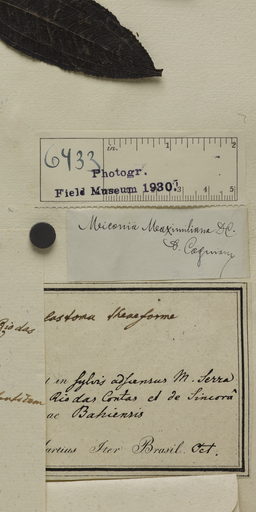 6433
in. 1 2
Photogr.
Field Museum 1930.
3 4 5
Miconia Maximiliana DC.
A. Cogniaux
Rio das
astoma theaeforme
t in sylvis adscensus M. Serra
Rio das Contas et de Sincorá
ac Bahiensis
artius Iter Brasil. Oct.